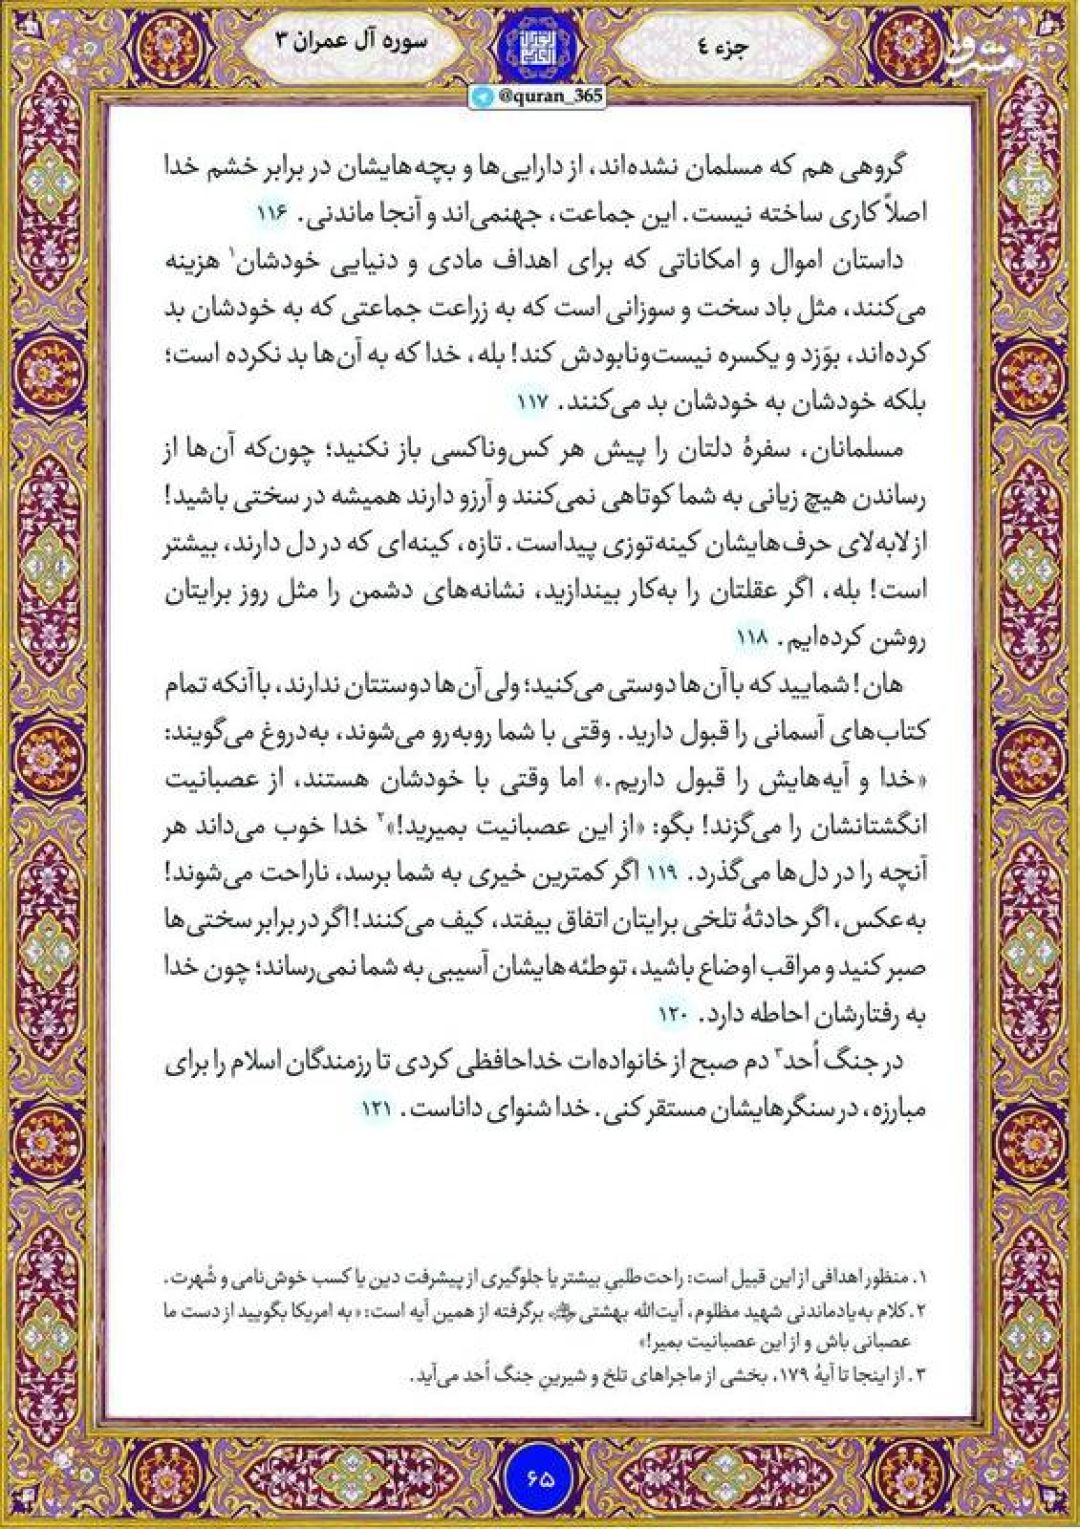 جزء ۴
سوره آل عمران ۳
@quran_365
مشرق
گروهی هم که مسلمان نشده‌اند، از دارایی‌ها و بچه‌هایشان در برابر خشم خدا
اصلاً کاری ساخته نیست. این جماعت، جهنمی‌اند و آنجا ماندنی. ۱۱۶
داستان اموال و امکاناتی که برای اهداف مادی و دنیایی خودشان۱ هزینه
می‌کنند، مثل باد سخت و سوزانی است که به زراعت جماعتی که به خودشان بد
کرده‌اند، بوَزد و یکسره نیست‌ونابودش کند! بله، خدا که به آن‌ها بد نکرده است؛
بلکه خودشان به خودشان بد می‌کنند. ۱۱۷
مسلمانان، سفرهٔ دلتان را پیش هر کس‌وناکسی باز نکنید؛ چون‌که آن‌ها از
رساندن هیچ زیانی به شما کوتاهی نمی‌کنند و آرزو دارند همیشه در سختی باشید!
از لابه‌لای حرف‌هایشان کینه‌توزی پیداست. تازه، کینه‌ای که در دل دارند، بیشتر
است! بله، اگر عقلتان را به‌کار بیندازید، نشانه‌های دشمن را مثل روز برایتان
روشن کرده‌ایم. ۱۱۸
هان! شمایید که با آن‌ها دوستی می‌کنید؛ ولی آن‌ها دوستتان ندارند، با آنکه تمام
کتاب‌های آسمانی را قبول دارید. وقتی با شما روبه‌رو می‌شوند، به‌دروغ می‌گویند:
«خدا و آیه‌هایش را قبول داریم.» اما وقتی با خودشان هستند، از عصبانیت
انگشتانشان را می‌گزند! بگو: «از این عصبانیت بمیرید!»۲ خدا خوب می‌داند هر
آنچه را در دل‌ها می‌گذرد. ۱۱۹ اگر کمترین خیری به شما برسد، ناراحت می‌شوند!
به‌عکس، اگر حادثهٔ تلخی برایتان اتفاق بیفتد، کیف می‌کنند! اگر در برابر سختی‌ها
صبر کنید و مراقب اوضاع باشید، توطئه‌هایشان آسیبی به شما نمی‌رساند؛ چون خدا
به رفتارشان احاطه دارد. ۱۲۰
در جنگ اُحد۳ دم صبح از خانواده‌ات خداحافظی کردی تا رزمندگان اسلام را برای
مبارزه، در سنگرهایشان مستقر کنی. خدا شنوای داناست. ۱۲۱
۱. منظور اهدافی از این قبیل است: راحت‌طلبیِ بیشتر یا جلوگیری از پیشرفت دین یا کسب خوش‌نامی و شُهرت.
۲. کلام به‌یادماندنی شهید مظلوم، آیت‌الله بهشتی برگرفته از همین آیه است: «به امریکا بگویید از دست ما
عصبانی باش و از این عصبانیت بمیر!»
۳. از اینجا تا آیهٔ ۱۷۹، بخشی از ماجراهای تلخ و شیرینِ جنگ اُحد می‌آید.
۶۵